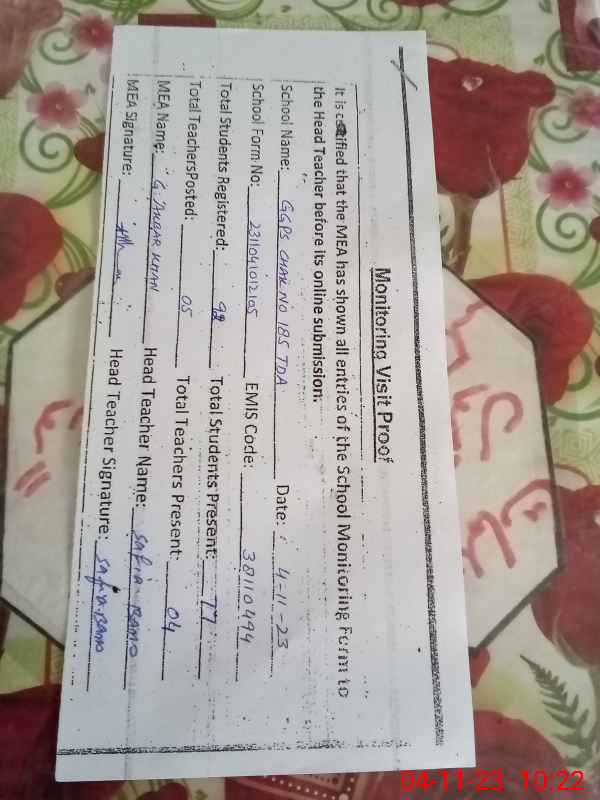 Monitoring Visit Proof
It is certified that the MEA has shown all entries of the School Monitoring Form to
the Head Teacher before its online submission.
School Name: GGPS CHAK NO 185 TDA Date: 4-11-23
School Form No: 2311041012105 EMIS Code: 38110494
Total Students Registered: 98 Total Students Present: 77
Total TeachersPosted: 05 Total Teachers Present: 04
MEA Name: KHAN Head Teacher Name: Safia BANO
MEA Signature: Head Teacher Signature: Safia BANO
04-11-23 10:22